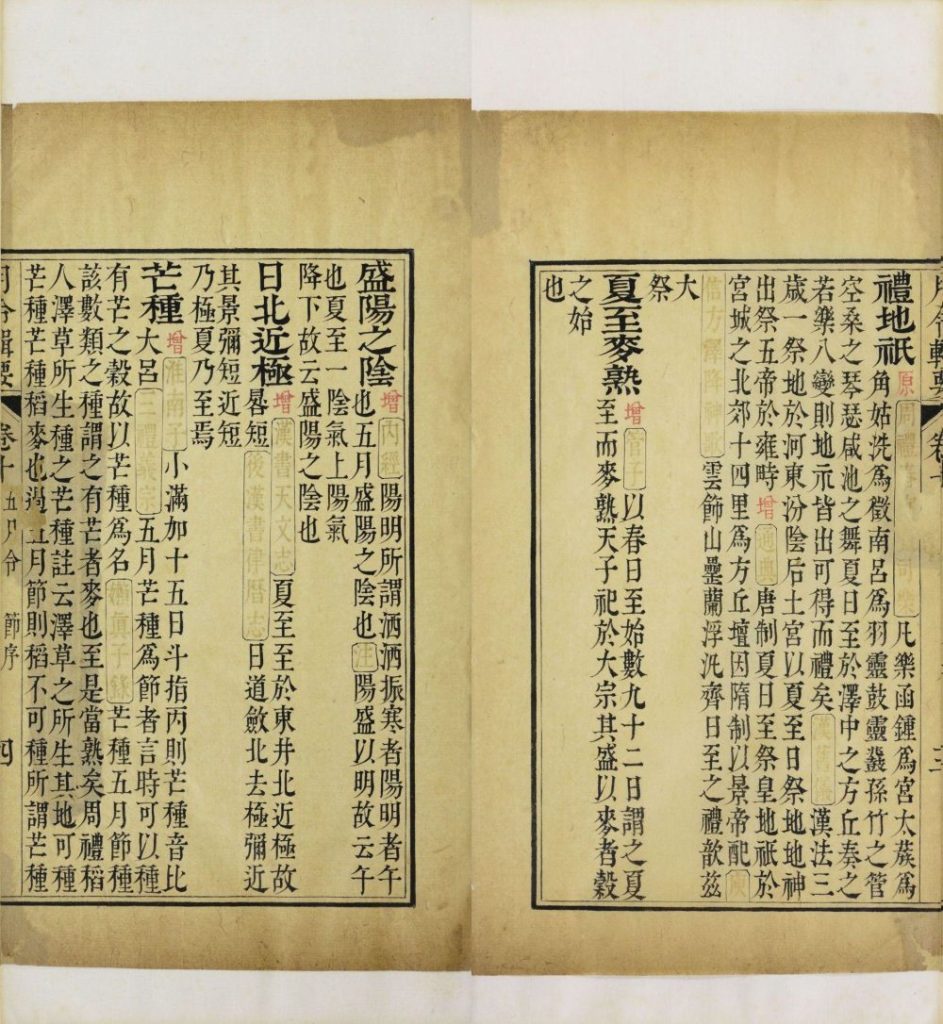 月令輯要 卷十 三
禮地祇 原 周禮 司樂 凡樂函鍾爲宮太蔟爲
角姑洗爲徵南呂爲羽靈鼓靈鼗孫竹之管
空桑之琴瑟咸池之舞夏日至於澤中之方丘奏之
若樂八變則地示皆出可得而禮矣 漢法三
歲一祭地於河東汾陰后土宮以夏至日祭地地神
出祭五帝於雍畤 增 通典 唐制夏日至祭皇地祇於
宮城之北郊十四里爲方丘壇因隋制以景帝配
雲飾山罍蘭浮汎齊日至之禮歆茲
大
祭
夏至麥熟 增 管子 以春日至始數九十二日謂之夏
至而麥熟天子祀於大宗其盛以麥者穀
之始
也
盛陽之陰 增 內經 陽明所謂洒洒振寒者陽明者午
也五月盛陽之陰也 註 陽盛以明故云午
也夏至一陰氣上陽氣
降下故云盛陽之陰也
日北近極 增 漢書天文志 夏至至於東井北近極故
晷短 後漢書律曆志 日道斂北去極彌近
其景彌短近短
乃極夏乃至焉
芒種 增 淮南子 小滿加十五日斗指丙則芒種音比
大呂 三禮義宗 五月芒種爲節者言時可以種
有芒之穀故以芒種爲名 懶真子錄 芒種五月節種
該數類之種謂之有芒者麥也至是當熟矣周禮稻
人澤草所生種之芒種註云澤草之所生其地可種
芒種芒種稻麥也過五月節則稻不可種所謂芒種
月令輯要 卷十 五月令 節序 四